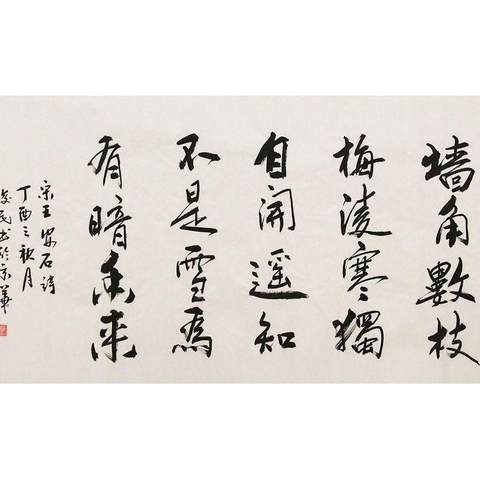 墙角數枝
梅淩寒獨
自開遥知
不是雪為
有暗香来
宋王安石詩
丁酉之秋月
民书於京華